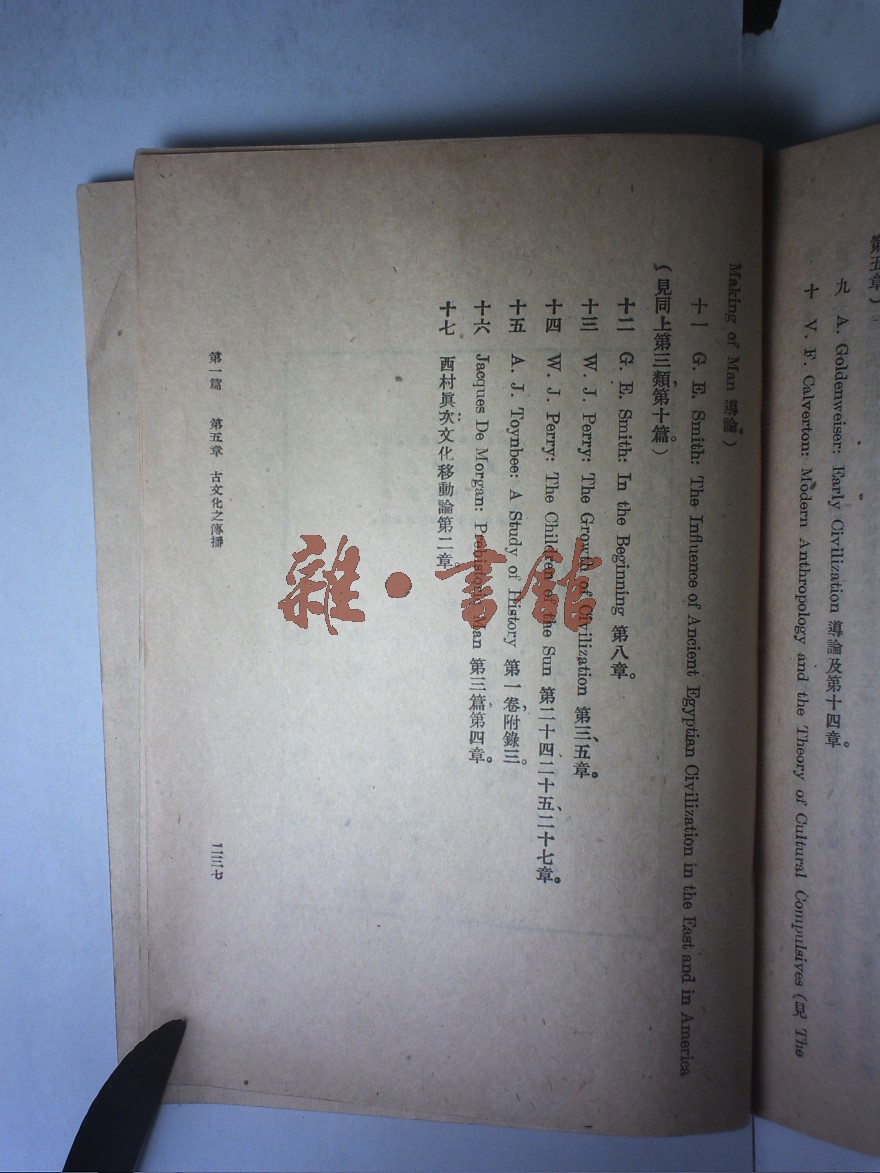 第五章)
九 A. Goldenweiser: Early Civilization 導論及第十四章。
十 V. F. Calverton: Modern Anthropology and the Theory of Cultural Compulsives (見 The
Making of Man 導論)
十一 G. E. Smith: The Influence of Ancient Egyptian Civilization in the East and in America
(見同上第三類第十篇。)
十二 G. E. Smith: In the Beginning 第八章。
十三 W. J. Perry: The Growth of Civilization 第三、五章。
十四 W. J. Perry: The Children of the Sun 第二十四、二十五、二十七章。
十五 A. J. Toynbee: A Study of History 第一卷附錄三。
十六 Jacques De Morgan: Prehistoric Man 第三篇第四章。
十七 西村眞次:文化移動論第二章。
第一篇 第五章 古文化之傳播
二三七
雜·書館